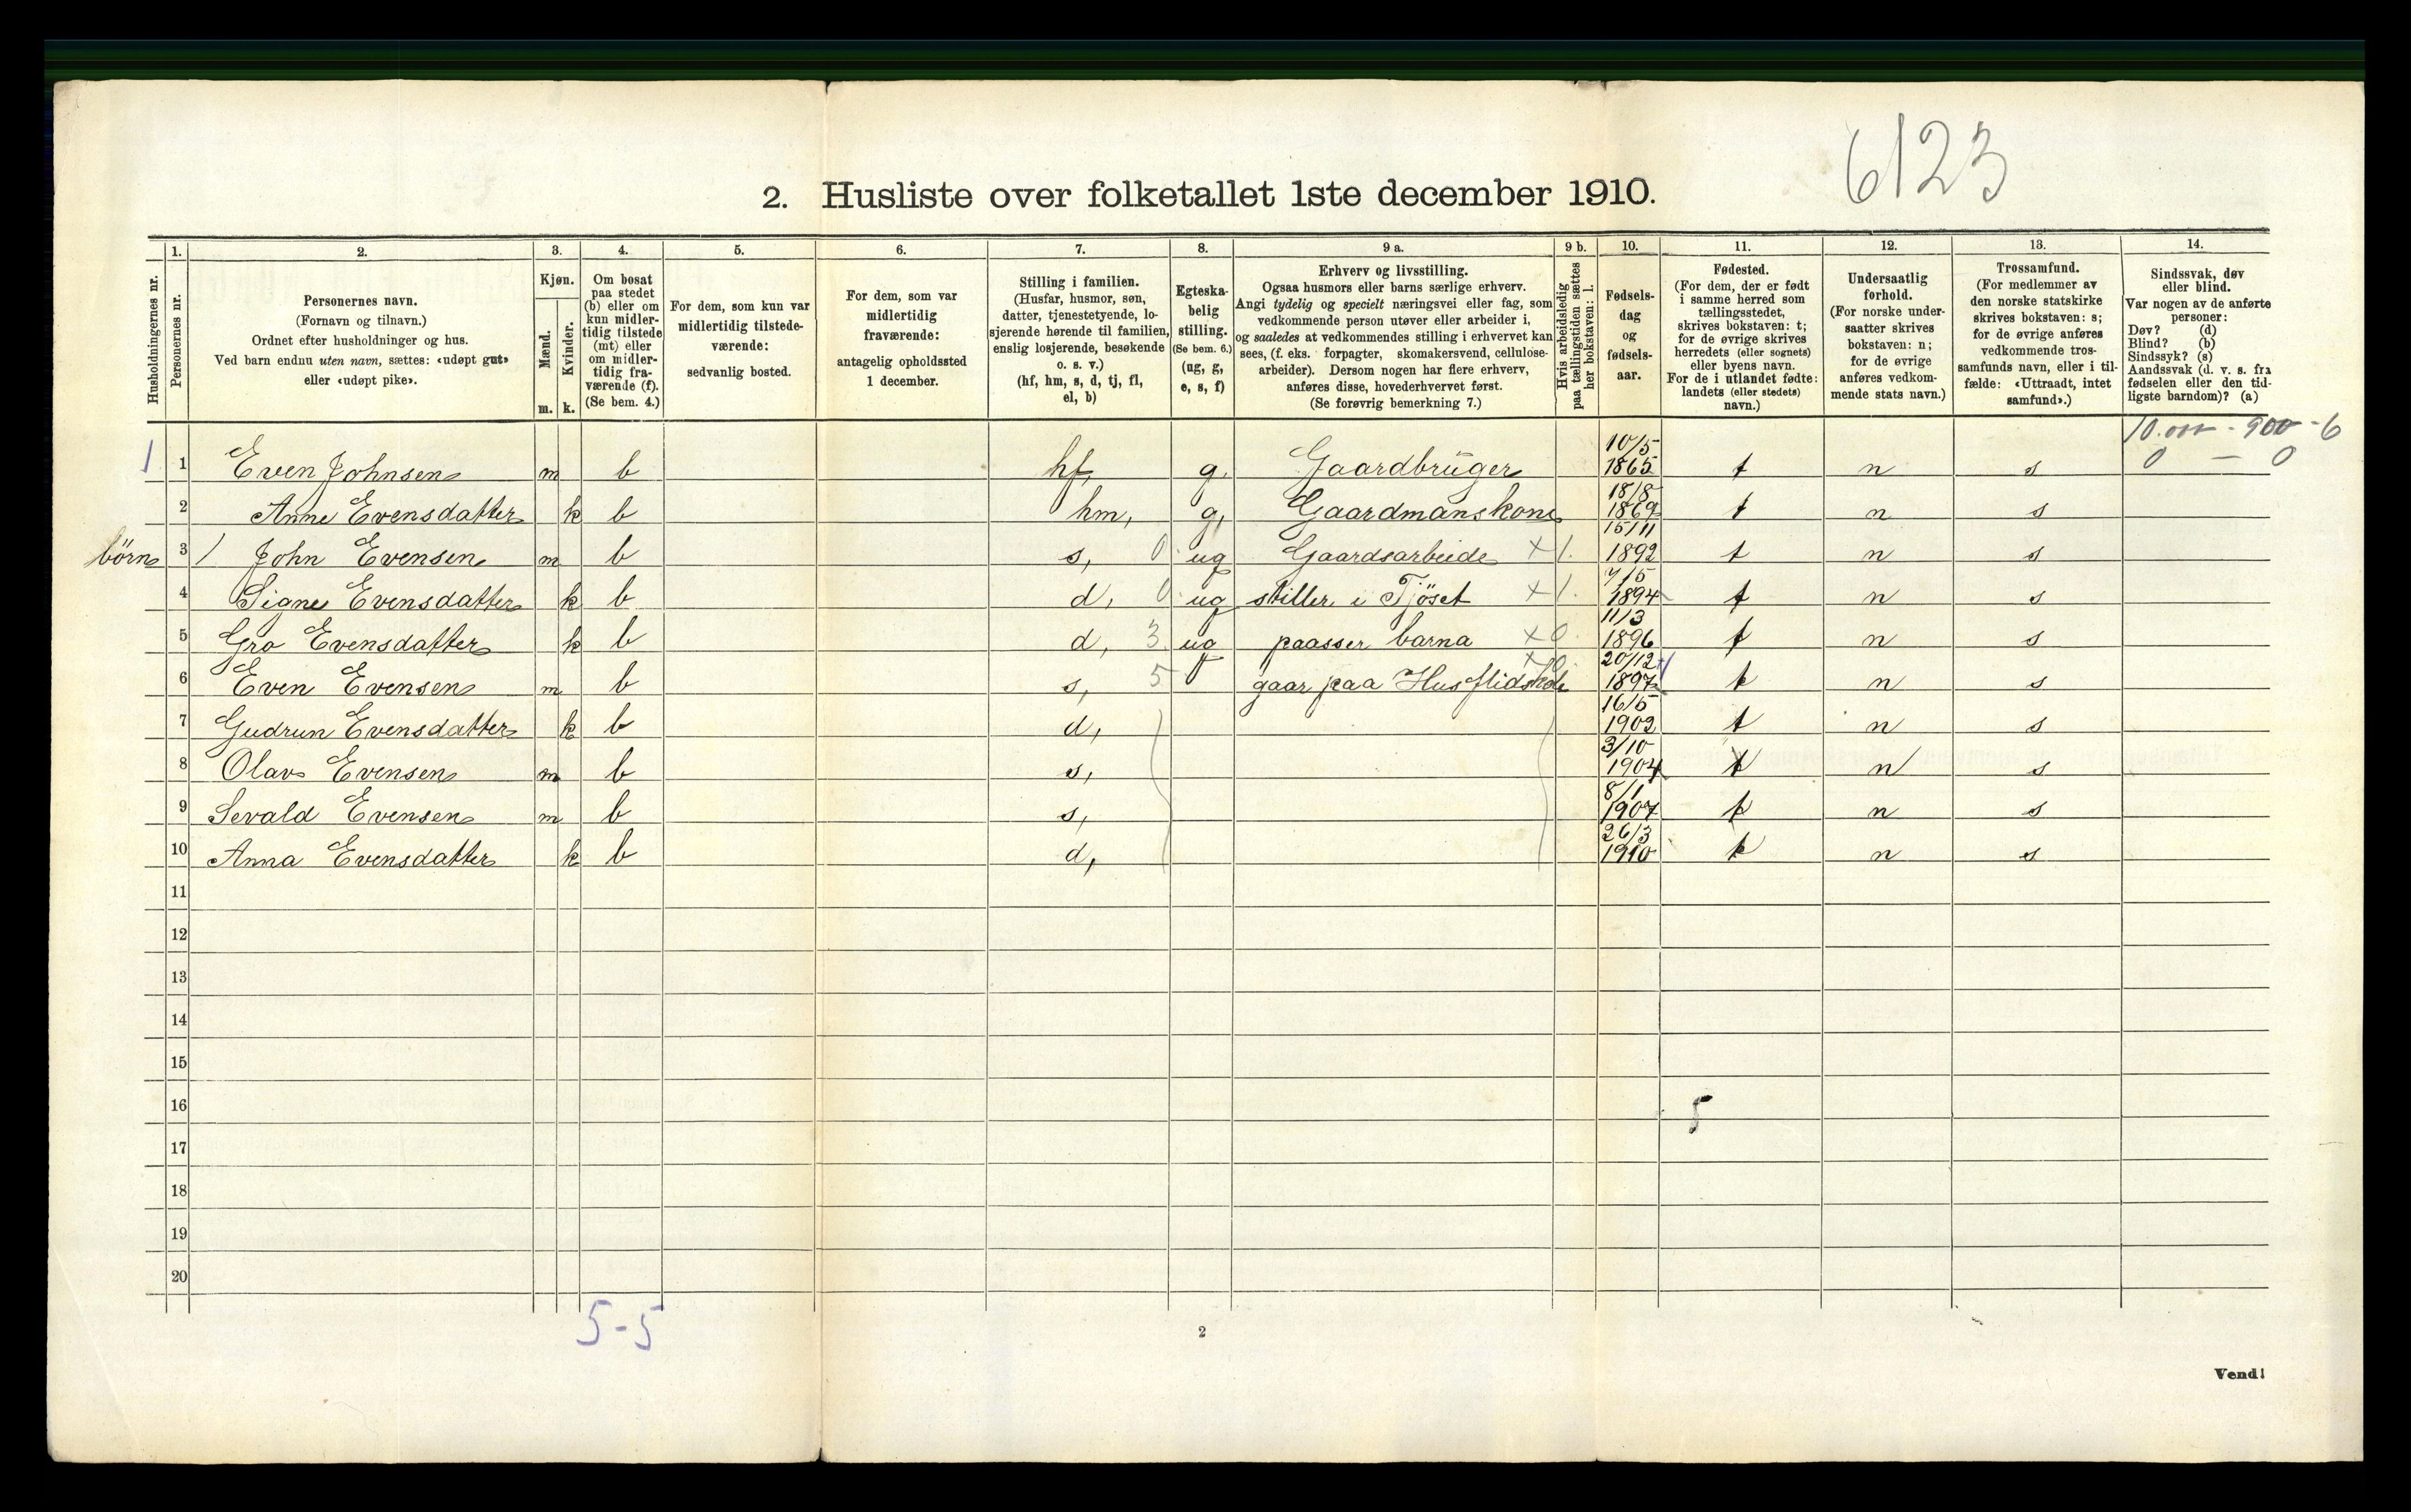 6123
2. Husliste over folketallet 1ste december 1910.
Husholdningernes nr.
1.
Personernes nr.
2.
Personernes navn.
(Fornavn og tilnavn.)
Ordnet efter husholdninger og hus.
Ved barn endnu uten navn, sættes: «udøpt gut»
eller «udøpt pike».
3.
Kjøn.
Mænd.
Kvinder.
m. k.
4.
Om bosat
paa stedet
(b) eller om
kun midler-
tidig tilstede
(mt) eller
om midler-
tidig fra-
værende (f).
(Se bem. 4.)
5.
For dem, som kun var
midlertidig tilstede-
værende:
sedvanlig bosted.
6.
For dem, som var
midlertidig
fraværende:
antagelig opholdssted
1 december.
7.
Stilling i familien.
(Husfar, husmor, søn,
datter, tjenestetyende, lo-
sjerende hørende til familien,
enslig losjerende, besøkende
o. s. v.)
(hf, hm, s, d, tj, fl,
el, b)
8.
Egteska-
belig
stilling.
(Se bem. 6.)
(ug, g,
e, s, f)
9 a.
Erhverv og livsstilling.
Ogsaa husmors eller barns særlige erhverv.
Angi tydelig og specielt næringsvei eller fag, som
vedkommende person utøver eller arbeider i,
og saaledes at vedkommendes stilling i erhvervet kan
sees, (f. eks. forpagter, skomakersvend, cellulose-
arbeider). Dersom nogen har flere erhverv,
anføres disse, hovederhvervet først.
(Se forøvrig bemerkning 7.)
9 b.
Hvis arbeidsledig
paa tællingstiden sættes
her bokstaven: l.
10.
Fødsels-
dag
og
fødsels-
aar.
11.
Fødested.
(For dem, der er født
i samme herred som
tællingsstedet,
skrives bokstaven: t;
for de øvrige skrives
herredets (eller sognets)
eller byens navn.
For de i utlandet fødte:
landets (eller stedets)
navn.)
12.
Undersaatlig
forhold.
(For norske under-
saatter skrives
bokstaven: n;
for de øvrige
anføres vedkom-
mende stats navn.)
13.
Trossamfund.
(For medlemmer av
den norske statskirke
skrives bokstaven: s;
for de øvrige anføres
vedkommende tros-
samfunds navn, eller i til-
fælde: «Uttraadt, intet
samfund».)
14.
Sindssvak, døv
eller blind.
Var nogen av de anførte
personer:
Døv? (d)
Blind? (b)
Sindssyk? (s)
Aandssvak (d. v. s. fra
fødselen eller den tid-
ligste barndom)? (a)
10.000 - 900 - 6
0 — 0
1 1 Even Johnsen m b hf, g. Gaardbrüger 10/5 1865 t n s
2 Anne Evensdatter k b hm, g, Gaardmanskone 18/8 1869 t n s
börn 3 / John Evensen m b s, 0 ug Gaardsarbeide x 1. 15/11 1892 t n s
4 Signe Evensdatter k b d, 0 ug stiller i Fjöset x 1. 7/5 1894 t n s
5 Gro Evensdatter k b d, 3 ug paasser barna x 0. 11/3 1896 t n s
6 Even Evensen m b s, 5 gaar paa Husflidskole x 0 20/12 1897 t n s
7 Gudrun Evensdatter k b d, 16/5 1902 t n s
8 Olav Evensen m b s, 3/10 1904 t n s
9 Sevald Evensen m b s, 8/1 1907 t n s
10 Anna Evensdatter k b d, 26/3 1910 t n s
11
12
13
14
15
16
17
18
19
20
5-5
2
Vend!